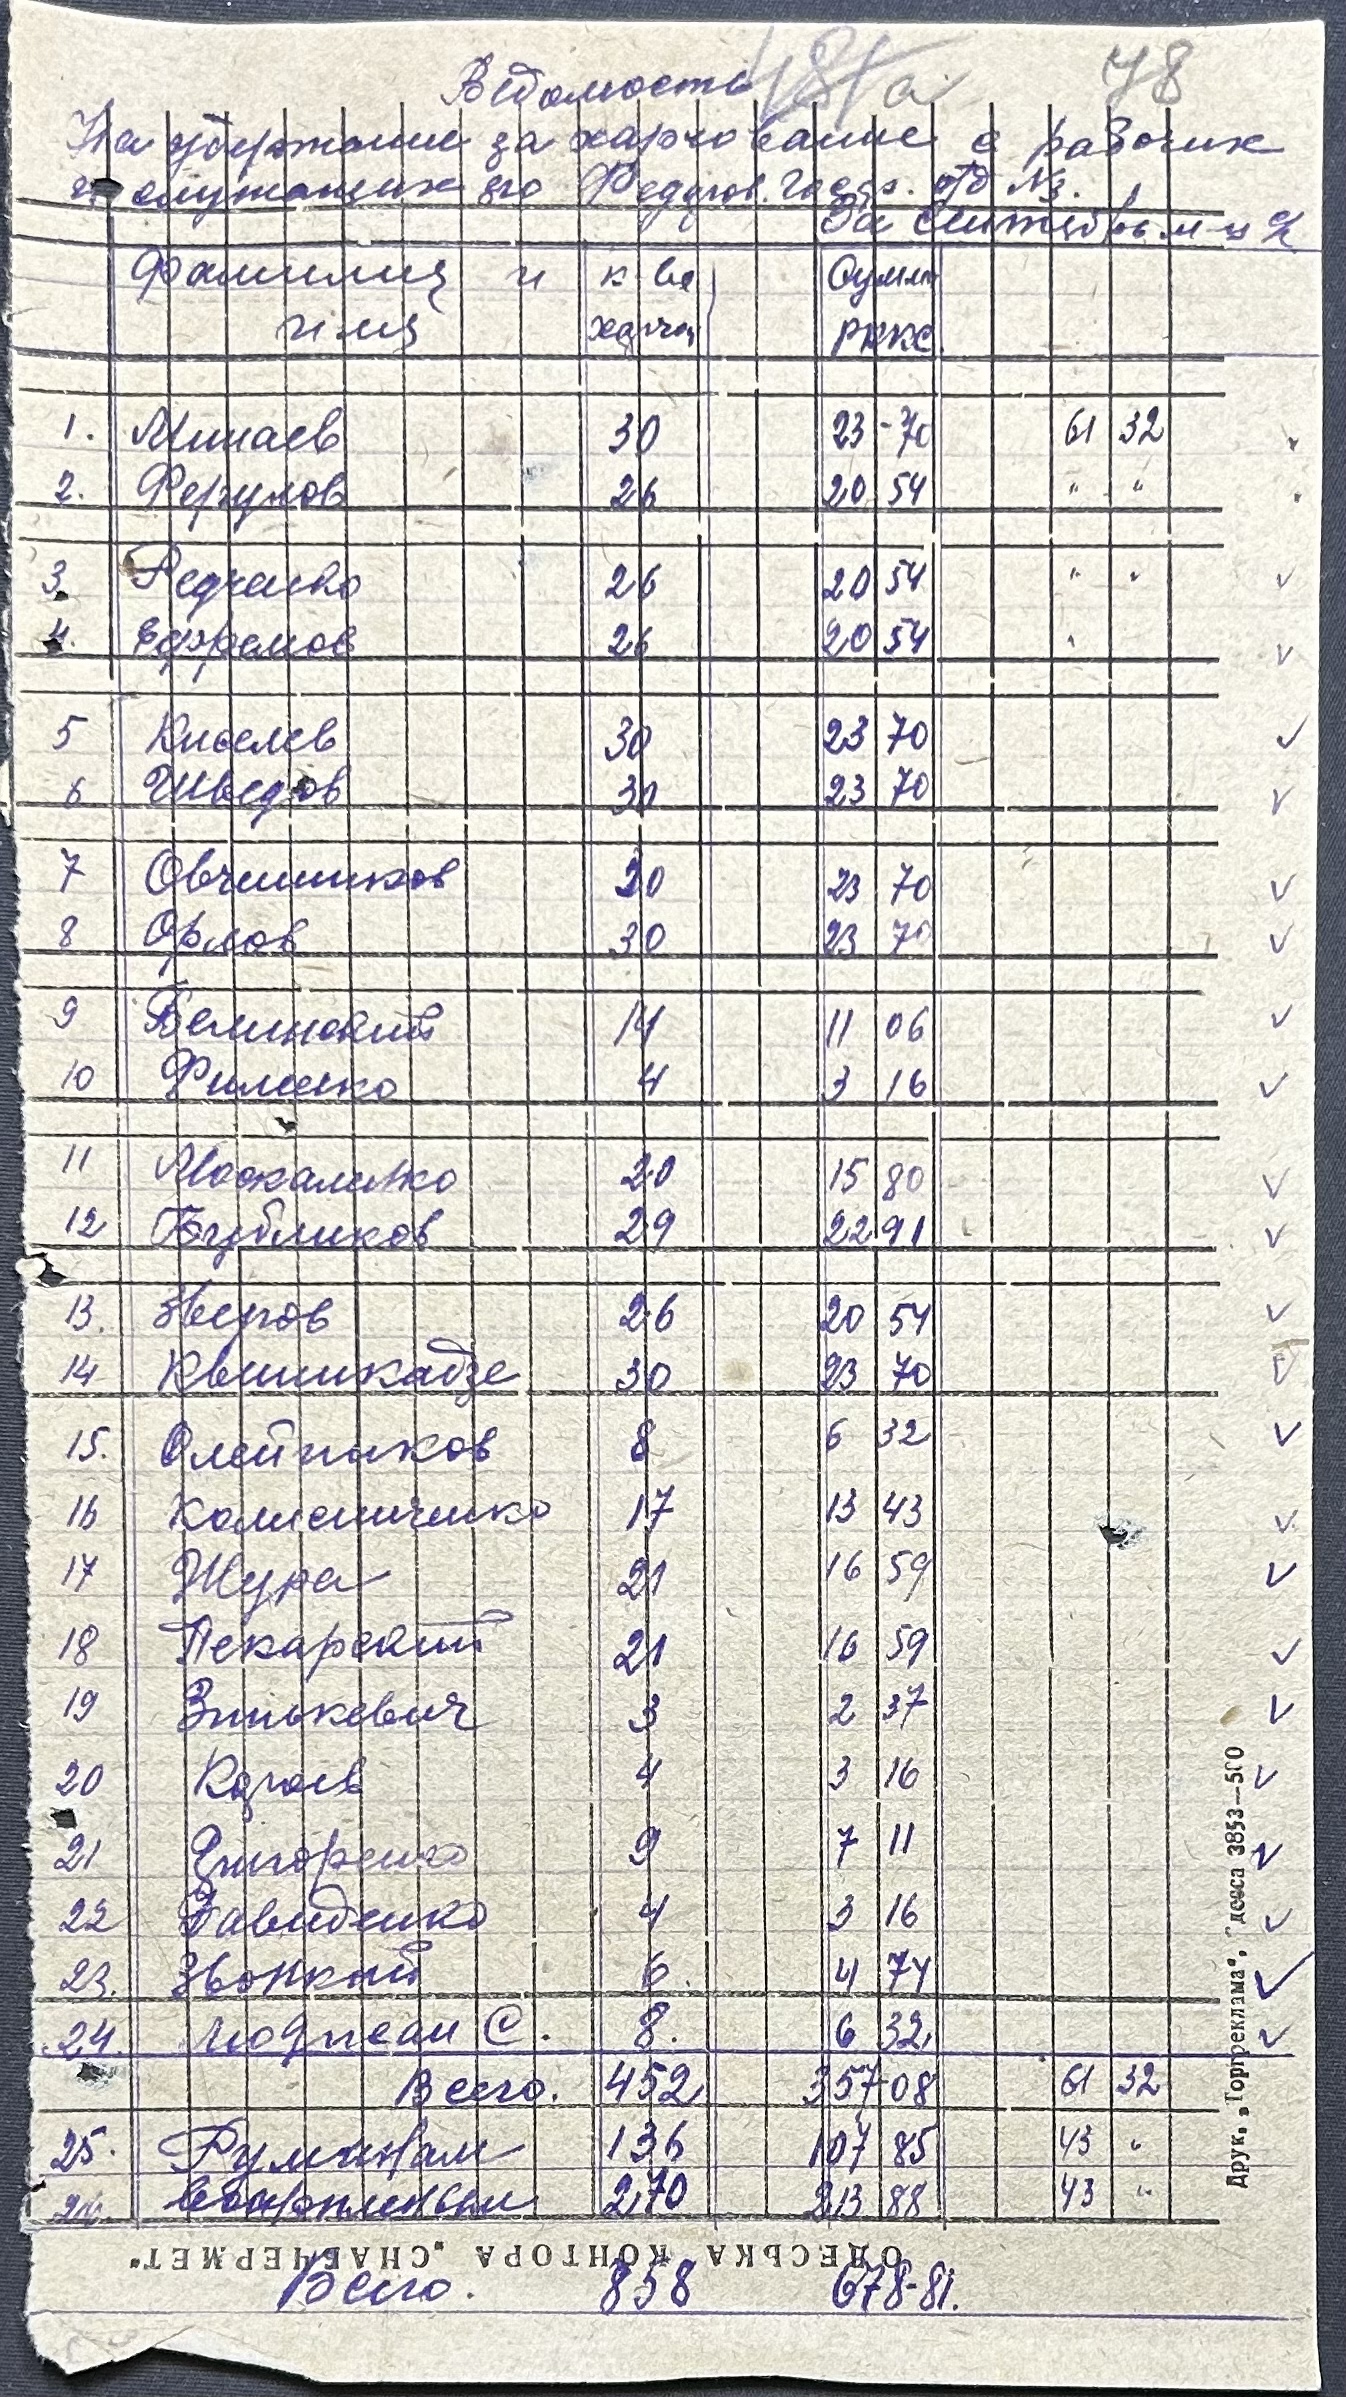 Ведомость 78
На удержание за харчование с рабочих
и служащих отд №3.
За сентябрь м-ц
Фамилия и к-во Сумма
имя харча РНКС.
1. Минаев 30 23-70 61 32
2. Фергулов 26 20 54 " "
3. Редченко 26 20 54 " "
4. Ефремов 26 20 54 "
5 Киселев 30 23 70
6 Шведов 30 23 70
7 Овчинников 30 23 70
8 Орлов 30 23 70
9 Белинский 14 11 06
10 Фименко 4 3 16
11 Москаленко 20 15 80
12 Бубликов 29 22 91
13. Зверов 26 20 54
14 Квиникадзе 30 23 70
15. Олейников 8 6 32
16 Колисниченко 17 13 43
17 Жура 21 16 59
18 Пекарский 21 16 59
19 Зинькевич 3 2 37
20 Козаев 4 3 16
21 Григоренко 9 7 11
22 Давиденко 4 3 16
23. Звонкий 6. 4 74
24. С. 8. 6 32
Всего. 452 357-08 61 32
25. Румынам 136 107 85 43 "
26. 270 213 88 43 "
ОДЕСЬКА КОНТОРА „СНАБЧЕРМЕТ"
Всего. 858 678-81.
Друк. „Горреклама". Одеса 3853—500